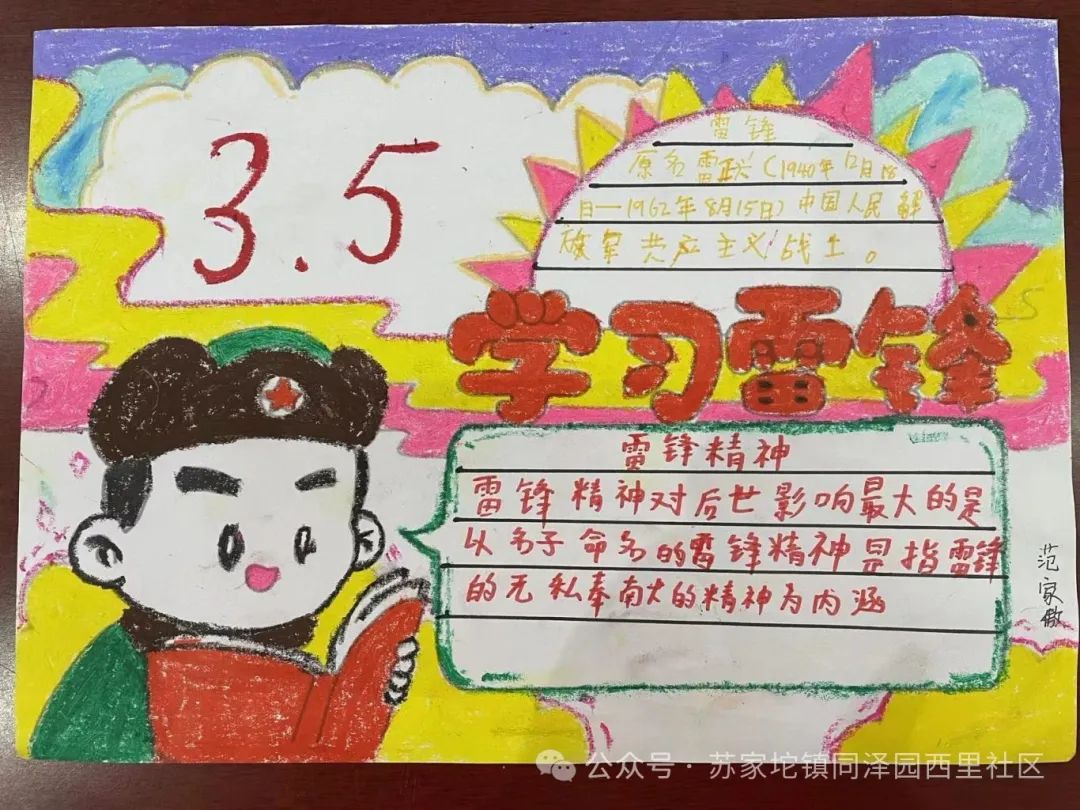 3.5
雷锋
原名雷正兴(1940年12月18
日一1962年8月15日)中国人民解
放军共产主义战士。
学习雷锋
雷锋精神
雷锋精神对后世影响最大的是
以名子命名的雷锋精神是指雷锋
的无私奉献的精神为内涵
范家傲
公众号·苏家坨镇同泽园西里社区